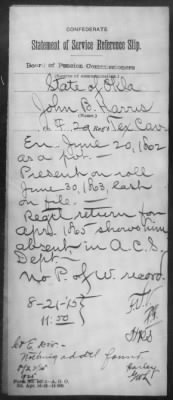 CONFEDERATE
Statement of Service Reference Slip.
Board of Pension Commissioners
(Source of communication.)
State of Okla
John B. Harris
(Name.)
F. 29 Reg Tex Cav.
En. June 20, 1862
as a pvt.—
Present on roll
June 30, 1863, last
on file.—
Regtl return for
apr. 1865 shows him
absent in A.C.S.
Dept.—
No P. of W. record
8-21-15
11:50
Nothing addtl found